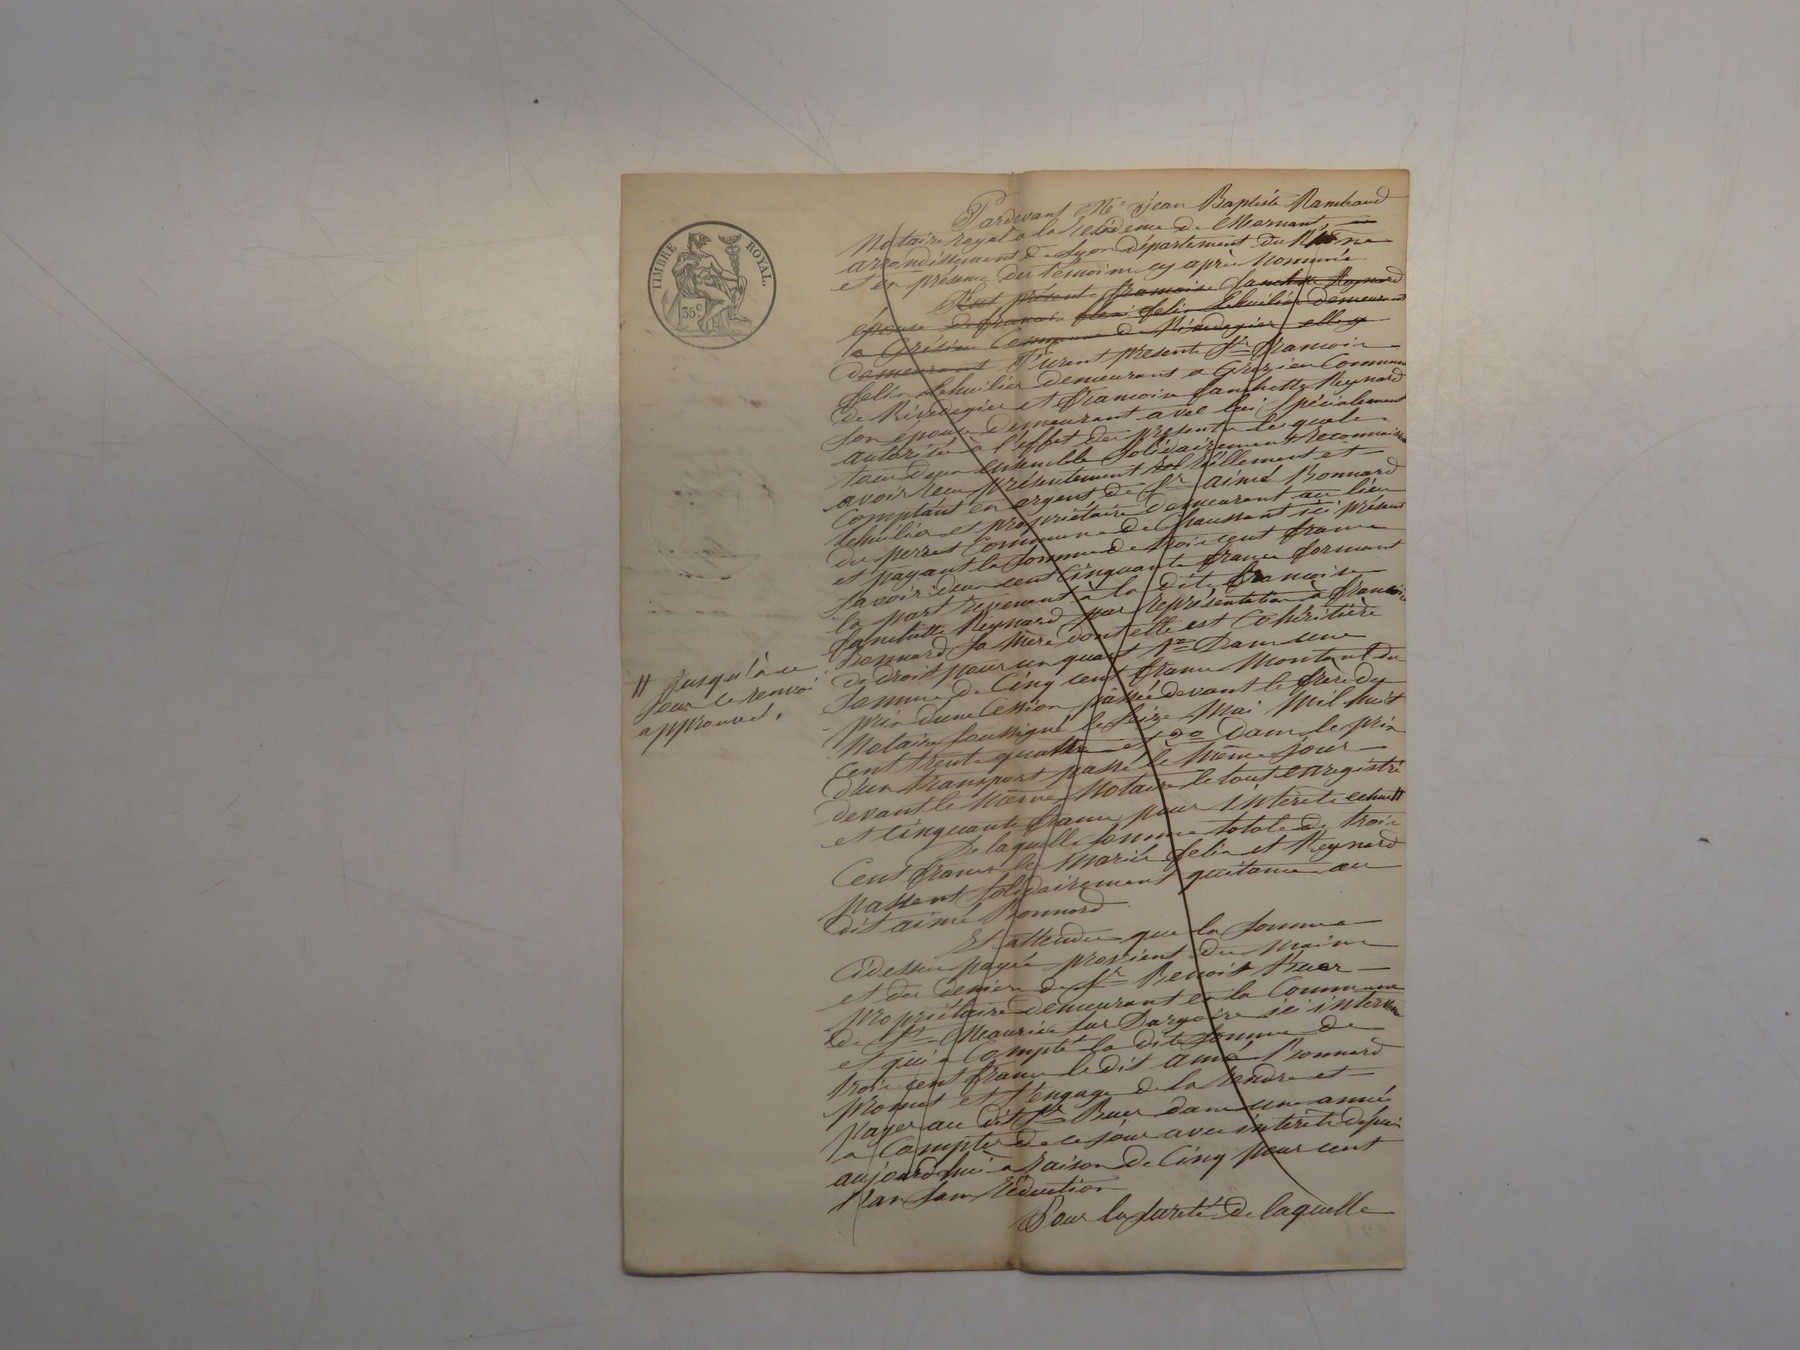 TIMBRE ROYAL.
35c
Pardevant Me Jean Baptiste Rambaud
Notaire royal a la résidence de Mornant
arrondissement de Lyon département du Rhône
et en présence des témoins cy après nommés
Fut présente francoise fanchette Reynard
épouse de francois felix thuilier demeurant
a Grésieu Commune de Riverie elle y
demeurant Furent présents Sr francois
felix thuilier demeurant a Grézieu Commune
de et francoise fanchette Reynard
son epouse demeurant avec lui Spécialement
autorisée à l'effet des présentes lesquels
tous deux ensemble Solidairement reconnaissent
avoir reçu présentement réellement et
Comptant en argent de Sr aimé Bonnard
thuilier et propriétaire demeurant au lieu
du perret Commune de Chaussant ici présent
et payant la Somme de trois cent francs
Savoir deux cent Cinquante francs formant
la part revenant à la dite francoise
fanchette Reynard par représentation de francoise
Bonnard Sa Mère dont elle est Cohéritière
de droit pour un quart 1° Dans une
Somme de Cinq cent francs Montant du
prix d'une Cession passée devant le frère du
Notaire Soussigné le Seize Mai Mil huit
Cent trente quatre et 2° Dans le prix
d'un transport passé le Même jour
devant le Même Notaire le tout enregistré
et Cinquante francs pour intérêts echus //
// jusqu'à ce
jour ce renvoi
approuvé.
De laquelle Somme totale de trois
Cent francs les Mariés felix et Reynard
passent Solidairement quitance au
dit aimé Bonnard
Et attendu que la Somme
Cidessus payée provient des Mains
et des deniers de Sr Benoit
propriétaire demeurant en la Commune
de St Maurice sur Dargoire ici intervenu
et qui a Compté la dite Somme de
trois cent francs le dit aimé Bonnard
promet et S'engage de la rendre et
payer au dit Sr dans une année
a Compter de ce jour avec intérêts depuis
aujourd'hui a raison de Cinq pour cent
l'an Sans réduction
Pour la Sureté de laquelle